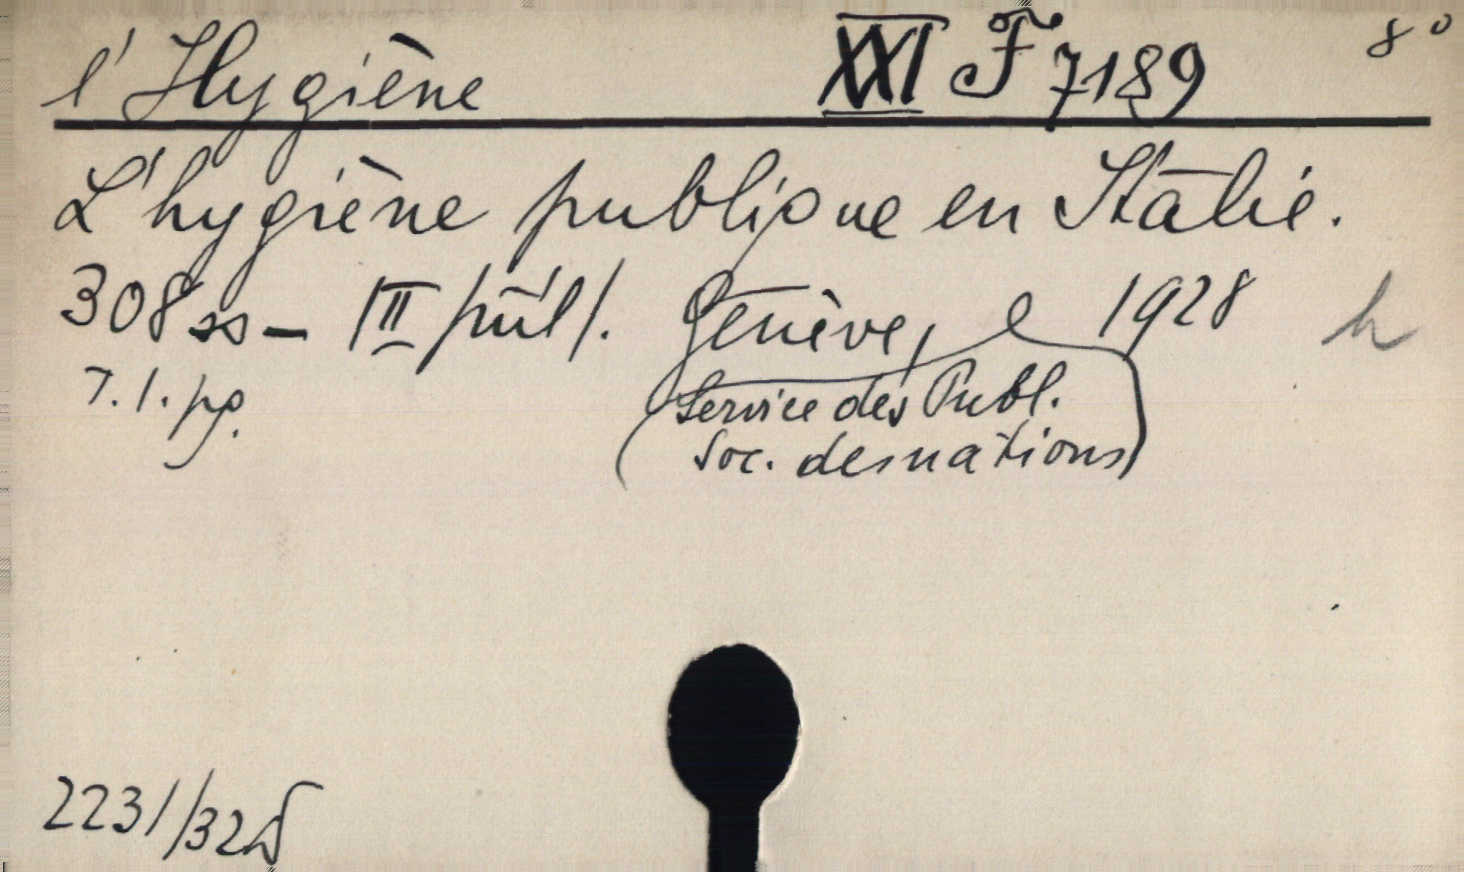 l'Hygiène XXI F 7189 8°
L'hygiène publique en Italie.
308 ss — III publ. Genève, 1928 h
(Service des Publ.
7.1. pg.
Soc. des nations)
2231/32